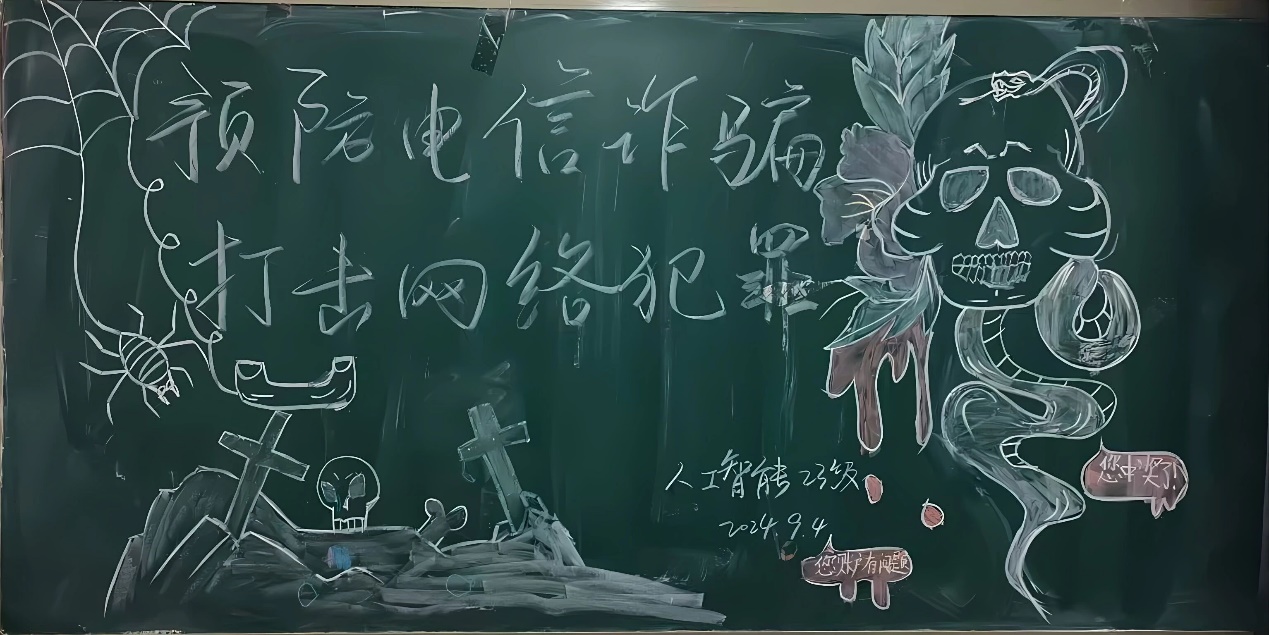 预防电信诈骗
打击网络犯罪
人工智能23级
2024.9.4
您中奖了!
您账户有问题